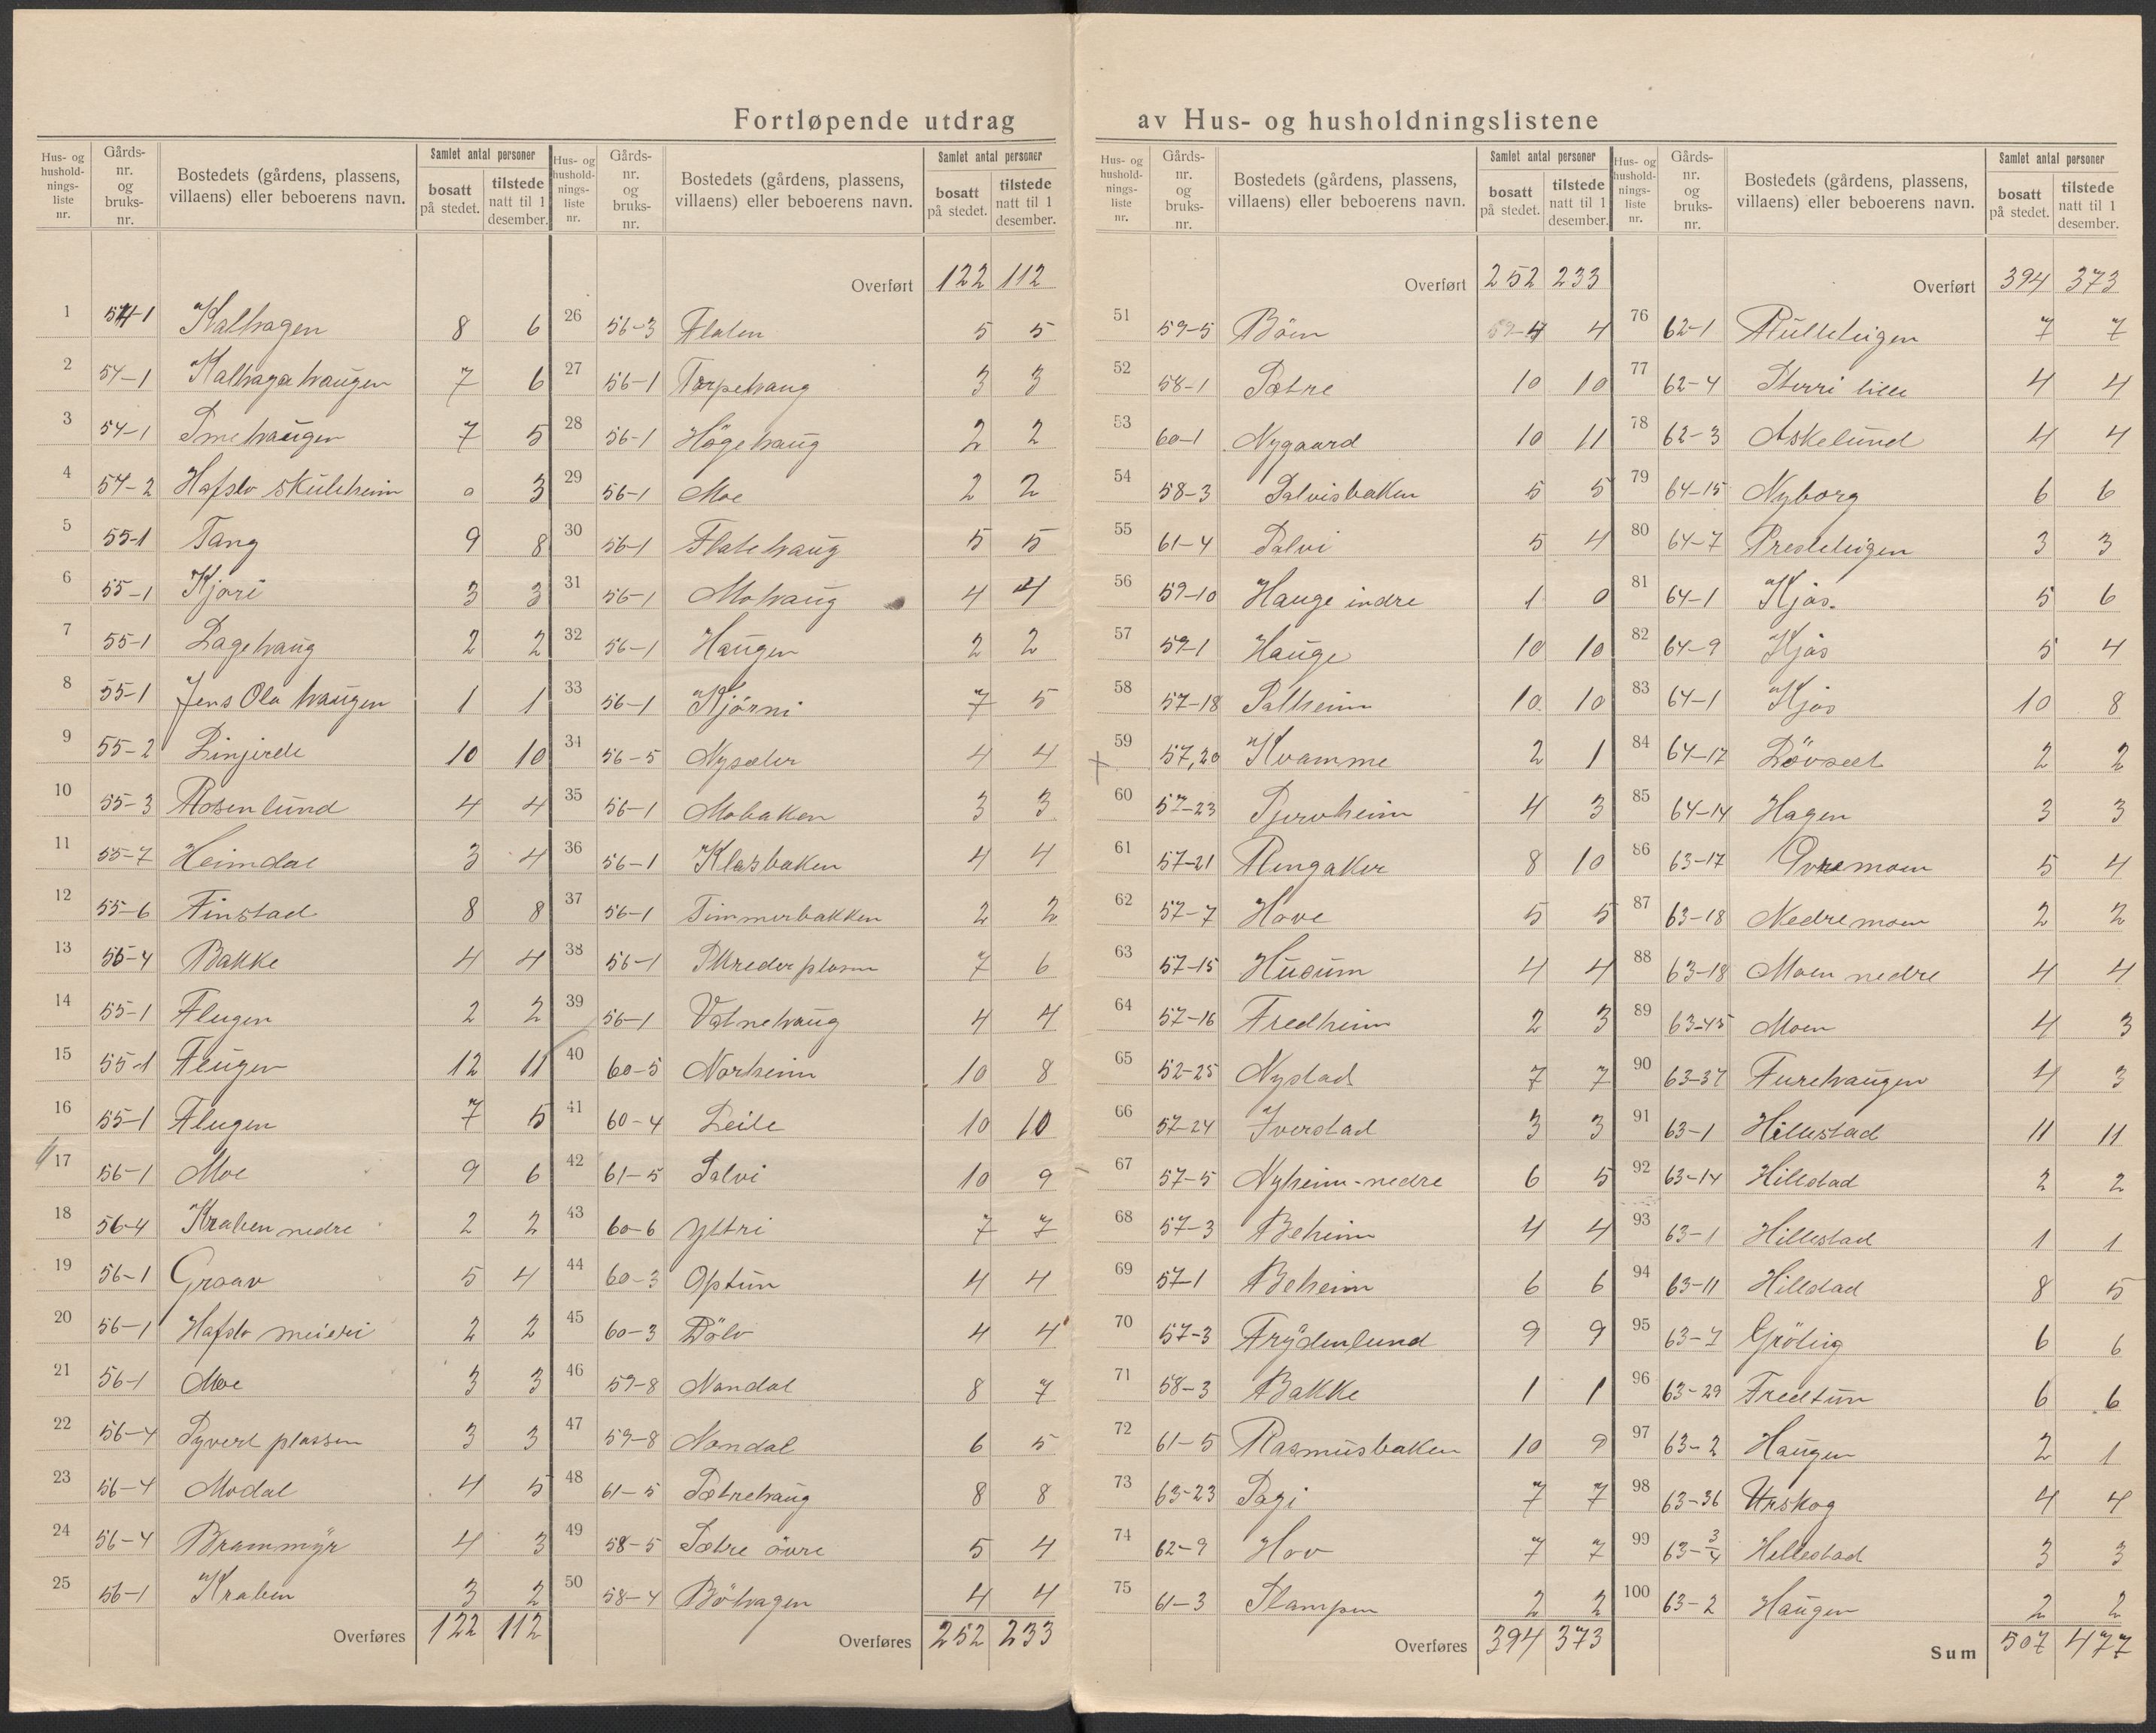 Fortløpende utdrag av Hus- og husholdningslistene
Hus- og husholdnings-liste nr. Gårds-nr. og bruks-nr. Bostedets (gårdens, plassens, villaens) eller beboerens navn. Samlet antal personer bosatt på stedet. tilstede natt til 1 desember.
1 54-1 Kalhagen 8 6
2 54-1 Kalhagahaugen 7 6
3 54-1 Smehaugen 7 5
4 54-2 Hafslo skuleheim 0 3
5 55-1 Tang 9 8
6 55-1 Kjøri 3 3
7 55-1 Lagehaug 2 2
8 55-1 Jens Ola haugen 1 1
9 55-2 Linjerde 10 10
10 55-3 Rosenlund 4 4
11 55-7 Heimdal 3 4
12 55-6 Finstad 8 8
13 55-4 Bakke 4 4
14 55-1 Flugen 2 2
15 55-1 Flugen 12 11
16 55-1 Flugen 7 5
17 56-1 Moe 9 6
18 56-4 Kraken nedre 2 2
19 56-1 Graav 5 4
20 56-1 Hafslo meieri 2 2
21 56-1 Moe 3 3
22 56-4 Syvert plassen 3 3
23 56-4 Modal 4 5
24 56-4 Brammyr 4 3
25 56-1 Kraken 3 2
Overføres 122 112
Hus- og husholdnings-liste nr. Gårds-nr. og bruks-nr. Bostedets (gårdens, plassens, villaens) eller beboerens navn. Samlet antal personer bosatt på stedet. tilstede natt til 1 desember.
Overført 122 112
26 56-3 Flaten 5 5
27 56-1 Torpehaug 3 3
28 56-1 Högehaug 2 2
29 56-1 Moe 2 2
30 56-1 Flatehaug 5 5
31 56-1 Mohaug 4 4
32 56-1 Haugen 2 2
33 56-1 Kjörni 7 5
34 56-5 Nysæter 4 4
35 56-1 Mobaken 3 3
36 56-1 Klasbaken 4 4
37 56-1 Timmerbakken 2 2
38 56-1 Skrederplassen 7 6
39 56-1 Vatnehaug 4 4
40 60-5 Norheim 10 8
41 60-4 Leite 10 10
42 61-5 Salvi 10 9
43 60-6 Yttri 7 7
44 60-3 Optun 4 4
45 60-3 Bölv 4 4
46 59-8 Nandal 8 7
47 59-8 Nondal 6 5
48 61-5 Sætrehaug 8 8
49 58-5 Sætre övre 5 4
50 58-4 Böhagen 4 4
Overføres 252 233
Hus- og husholdnings-liste nr. Gårds-nr. og bruks-nr. Bostedets (gårdens, plassens, villaens) eller beboerens navn. Samlet antal personer bosatt på stedet. tilstede natt til 1 desember.
Overført 252 233
51 59-5 Böen 4 4
52 58-1 Sætre 10 10
53 60-1 Nygaard 10 11
54 58-3 Salvisbaken 5 5
55 61-4 Salvi 5 4
56 59-10 Hauge indre 1 0
57 59-1 Hauge 10 10
58 57-18 Solheim 10 10
59 57,20 Kvamme 2 1
60 57-23 Bjerkheim 4 3
61 57-21 Ringaker 8 10
62 57-7 Hove 5 5
63 57-15 Husum 4 4
64 57-16 Fredheim 2 3
65 52-25 Nystad 7 7
66 57-24 Iverstad 3 3
67 57-5 Nyheim-nedre 6 5
68 57-3 Beheim 4 4
69 57-1 Beheim 6 6
70 57-3 Frydenlund 9 9
71 58-3 Bakke 1 1
72 61-5 Rasmusbaken 10 9
73 63-23 Sagi 7 7
74 62-9 Hov 7 7
75 61-3 Slampen 2 2
Overføres 394 373
Hus- og husholdnings-liste nr. Gårds-nr. og bruks-nr. Bostedets (gårdens, plassens, villaens) eller beboerens navn. Samlet antal personer bosatt på stedet. tilstede natt til 1 desember.
Overført 394 373
76 62-1 Rulleteigen 7 7
77 62-4 Sterri lille 4 4
78 62-3 Askelund 4 4
79 64-15 Nyborg 6 6
80 64-7 Presteteigen 3 3
81 64-1 Kjos. 5 6
82 64-9 Kjos 5 4
83 64-1 Kjos 10 8
84 64-17 Lövset 2 2
85 64-14 Hagen 3 3
86 63-17 Övremoen 5 4
87 63-18 Nedremoen 2 2
88 63-18 Moen nedre 4 4
89 63-45 Moen 4 3
90 63-37 Furehaugen 4 3
91 63-1 Hillestad 11 11
92 63-14 Hillestad 2 2
93 63-1 Hillestad 1 1
94 63-11 Hillestad 8 5
95 63-7 Gröteig 6 6
96 63-29 Fredtun 6 6
97 63-2 Haugen 2 1
98 63-36 Urskog 4 4
99 63-3/4 Hillestad 3 3
100 63-2 Haugen 2 2
Sum 507 477